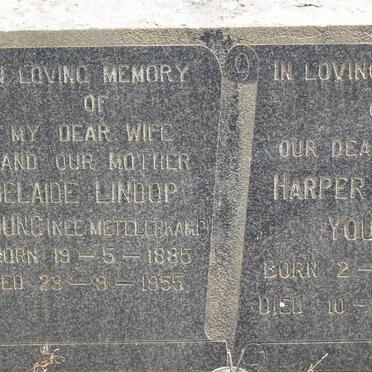 N LOVING MEMORY
OF
MY DEAR WIFE
AND OUR MOTHER
ELAIDE LINDOP
OUNG (NEE METELERKAMP
BORN 19-5-1885
ED 23-9-1955.
IN LOVING
OUR DEA
HARPER
YOU
BORN 2-
DIED 10-